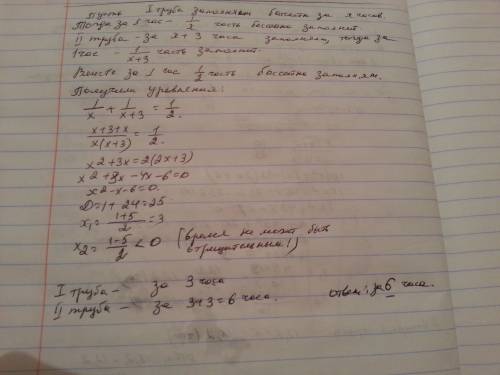 Пусть I труба заполняет бассейн за x часов.
Тогда за 1 час - 1/x часть бассейна заполнит
II труба - за x + 3 часа заполняет, тогда за
1 час - 1/(x+3) часть заполнит.
Вместе за 1 час 1/2 часть бассейна заполнят.
Получили уравнения:
1/x + 1/(x+3) = 1/2.
(x+3+x)/(x(x+3)) = 1/2.
x² + 3x = 2(2x+3)
x² + 3x - 4x - 6 = 0
x² - x - 6 = 0.
D = 1 + 24 = 25
x₁ = (1+5)/2 = 3
x₂ = (1-5)/2 < 0 (время не может быть
отрицательным!)
I труба - за 3 часа
II труба - за 3+3=6 часа.
Ответ: за 6 часа.